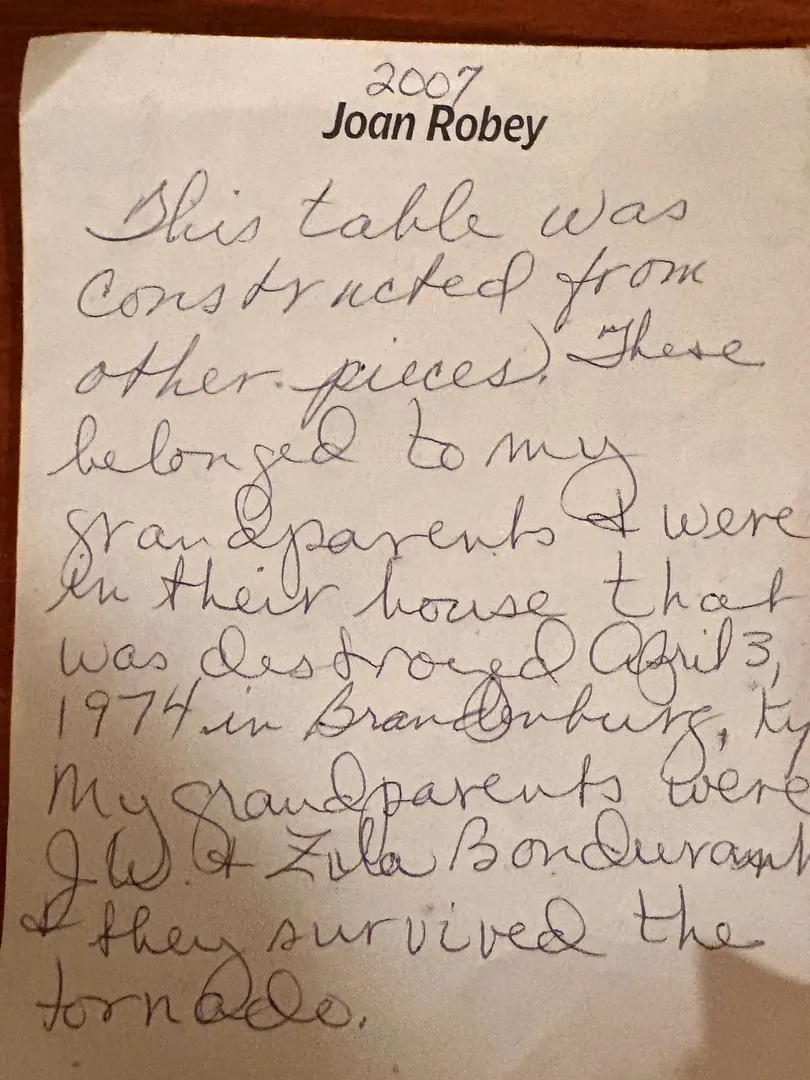 2007
Joan Robey
This table was
constructed from
other pieces. These
belonged to my
grandparents & were
in their house that
was destroyed April 3,
1974 in Brandenburg, Ky
My grandparents were
J.W. & Zula Bondurant
& they survived the
tornado.